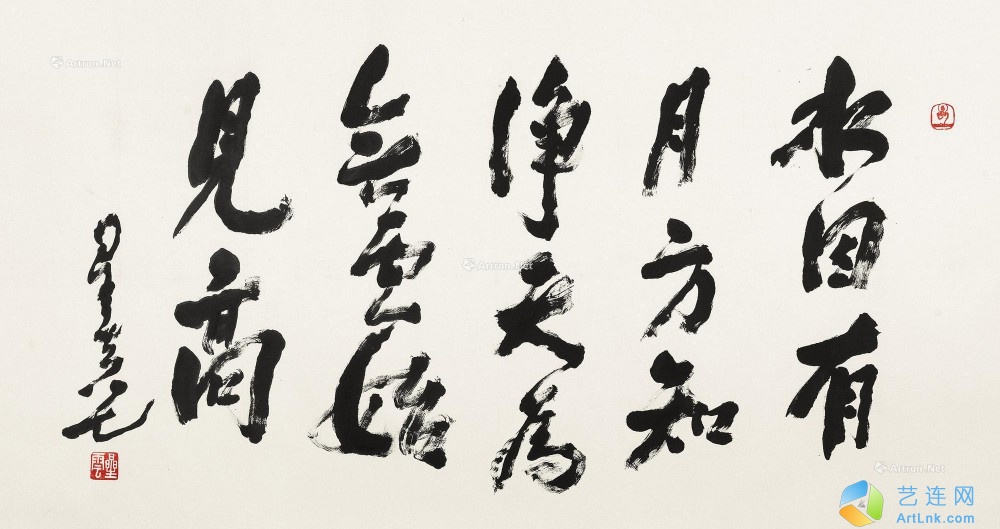 水因有
月方知
淨天為
無雲始
見高
星雲
Artron.Net
Artron.Net
Artron.Net
艺连网
ArtLnk.com